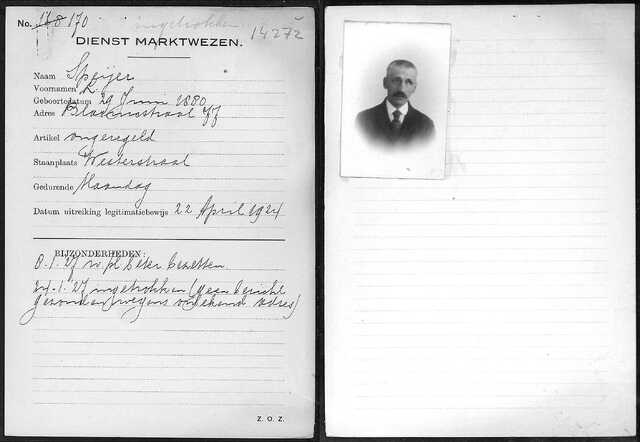 No. 168 170
ingetrokken
14272
DIENST MARKTWEZEN.
Naam Speijer
Voornamen L.
Geboortedatum 29 Juni 1880
Adres
Artikel ongeregeld
Staanplaats Westerstraat
Gedurende Maandag
Datum uitreiking legitimatiebewijs 22 April 1924
BIJZONDERHEDEN:
1.'27 pl. beter bezetten.
1.'27 ingetrokken (geen bericht
gezonden wegens onbekend adres)
Z. O. Z.